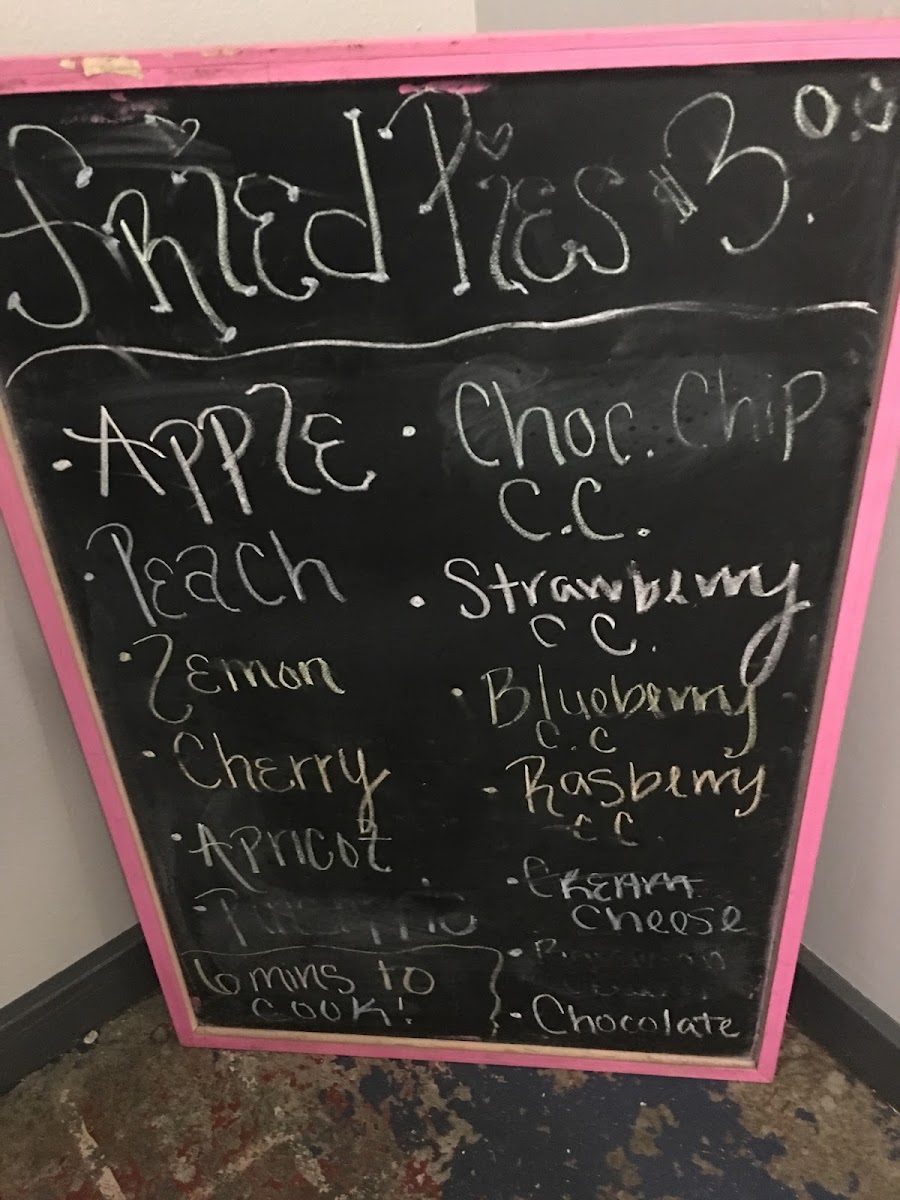 Fried Pies $3.00
· Apple
· Peach
· Lemon
· Cherry
· Apricot
· Pineapple
6 mins to
cook!
· Choc. Chip
C.C.
· Strawberry
C C.
· Blueberry
C.C
· Rasberry
C C.
· Cream
Cheese
· Chocolate